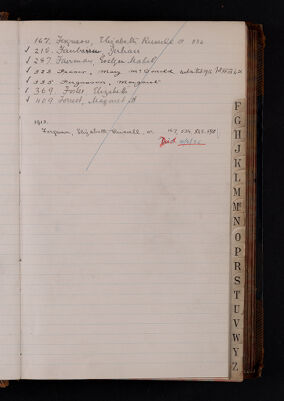 167. Ferguson, Elizabeth Russell or 534
√ 210. Fairbairn Julian
√ 247. Fairman, Evelyn Mabel
√ 323 Fraser, Mary McDonald
√ 335 Ferguson, Margaret
√ 369 Foster, Elizabeth
√ 409 Forrest, Margaret
1912.
Ferguson, Elizabeth Russell, or 167, 534,
Died
F
G
H
J
K
L
M
M
N
O
P
R
S
T
U
V
W
Y
Z